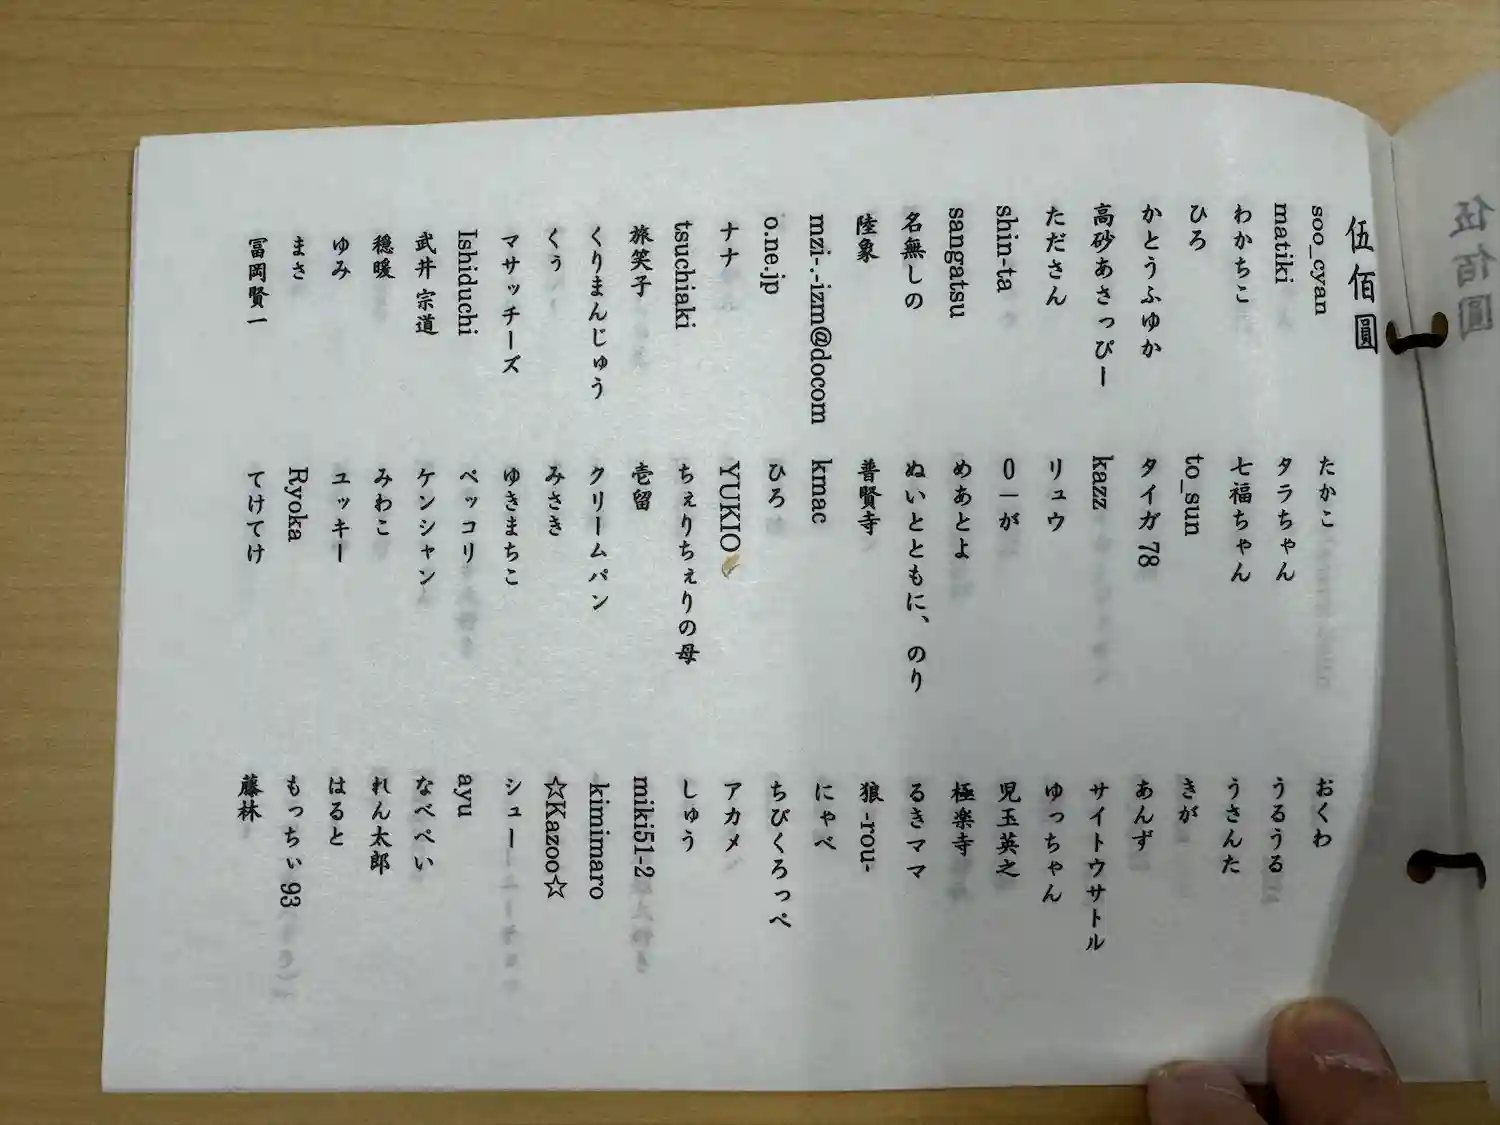 伍佰圓
soo_cyan
matiki
わかちこ
ひろ
かとうふゆか
高砂あさっぴー
たださん
shin-ta
sangatsu
名無しの
陸象
mzi-.-izm@docom
o.ne.jp
ナナ
tsuchiaki
旅笑子
くりまんじゅう
くぅ
マサッチーズ
Ishiduchi
武井 宗道
穏暖
ゆみ
まさ
冨岡賢一
たかこ
タラちゃん
七福ちゃん
to_sun
タイガ 78
kazz
リュウ
0－が
めあとよ
ぬいとともに、のり
普賢寺
kmac
ひろ
YUKIO
ちぇりちぇりの母
壱留
クリームパン
みさき
ゆきまちこ
ペッコリ
ケンシャン
みわこ
ユッキー
Ryoka
てけてけ
おくわ
うるうる
うさんた
きが
あんず
サイトウサトル
ゆっちゃん
児玉英之
極楽寺
るきママ
狼-rou-
にゃべ
ちびくろっぺ
アカメ
しゅう
miki51-2
kimimaro
☆Kazoo☆
シュー
ayu
なべぺい
れん太郎
はると
もっちぃ 93
藤林
伍佰圓